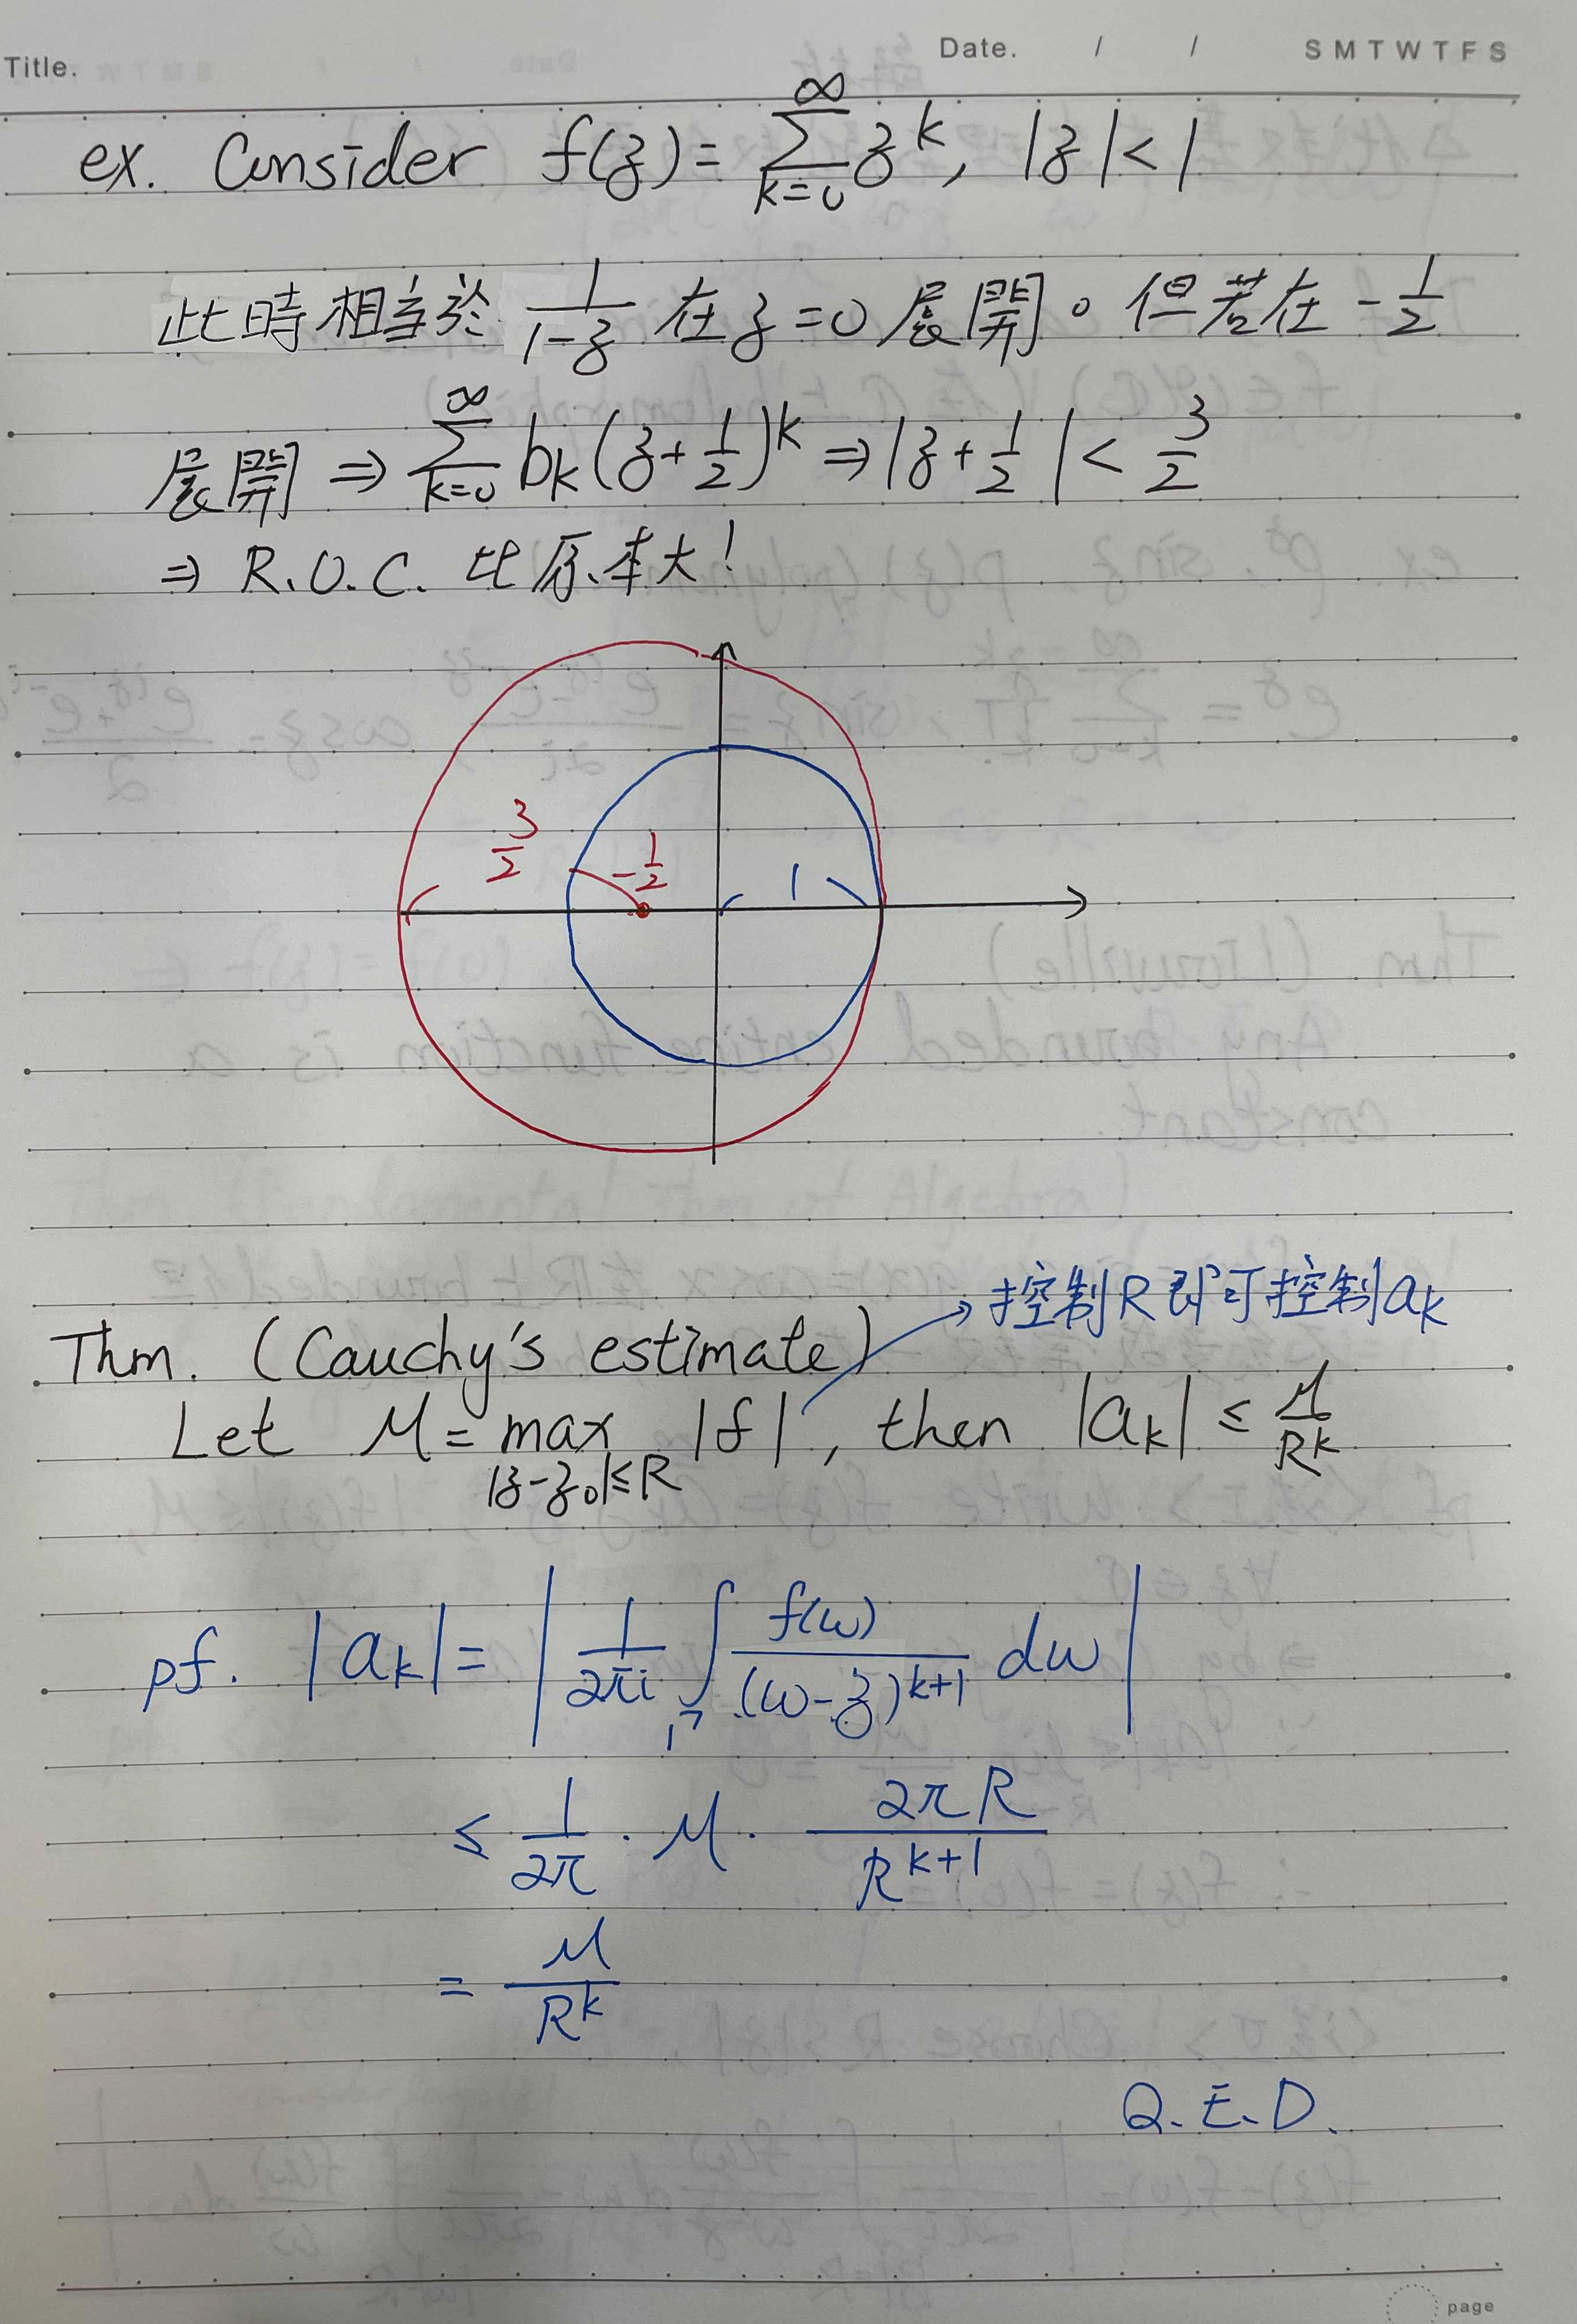 Title.
Date. / / S M T W T F S
ex. Consider f(z) = \sum_{k=0}^{∞} z^k, |z| < 1
此時相當於 \frac{1}{1-z} 在 z=0 展開。但若在 -\frac{1}{2}
展開 ⇒ \sum_{k=0}^{∞} b_k (z+\frac{1}{2})^k ⇒ |z+\frac{1}{2}| < \frac{3}{2}
⇒ R.O.C. 比原本大!
\frac{3}{2}
-\frac{1}{2}
1
→ 控制R即可控制a_k
Thm. (Cauchy's estimate)
Let M = \max_{|z-z_0|≤R} |f|, then |a_k| ≤ \frac{M}{R^k}
pf. |a_k| = |\frac{1}{2πi} \int_Γ \frac{f(ω)}{(ω-z)^{k+1}} dω|
≤ \frac{1}{2π} · M · \frac{2πR}{R^{k+1}}
= \frac{M}{R^k}
Q.E.D.
page